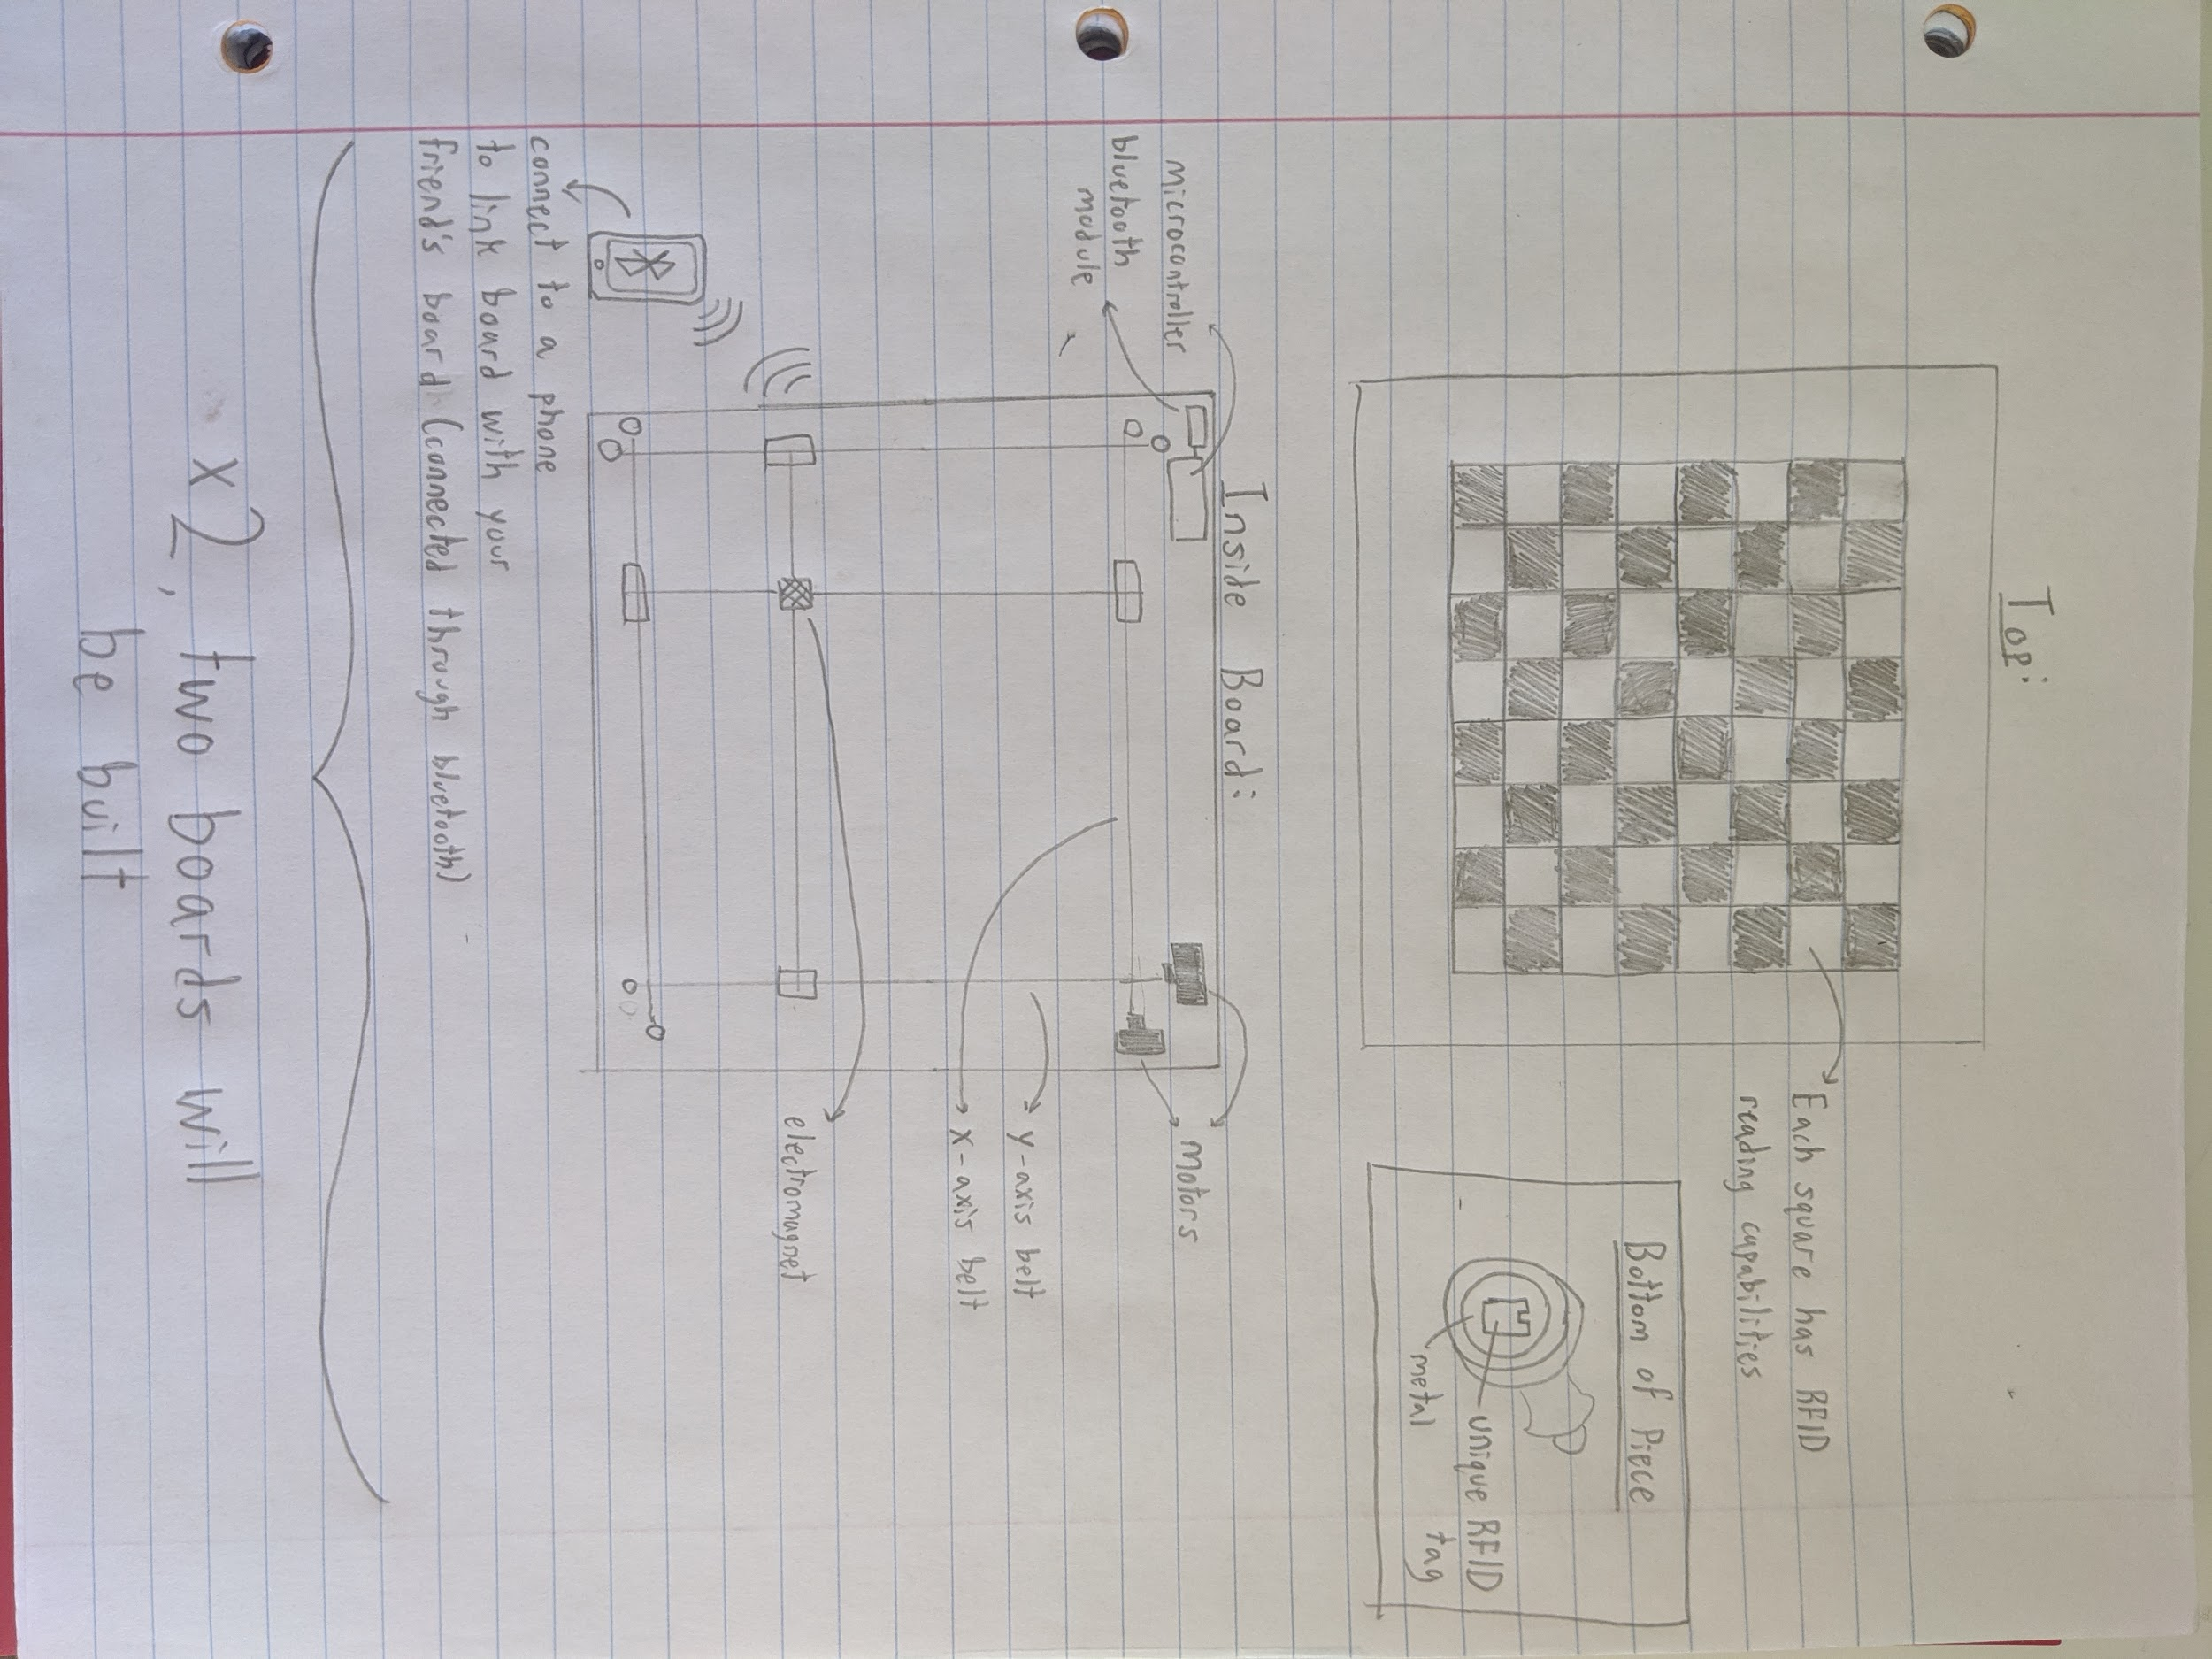 Top:
Each square has RFID
reading capabilities
Bottom of Piece
unique RFID
tag
metal
Inside Board:
microcontroller
bluetooth
module
motors
y-axis belt
x-axis belt
electromagnet
connect to a phone
to link board with your
friend's board (connected through bluetooth)
x2, two boards will
be built